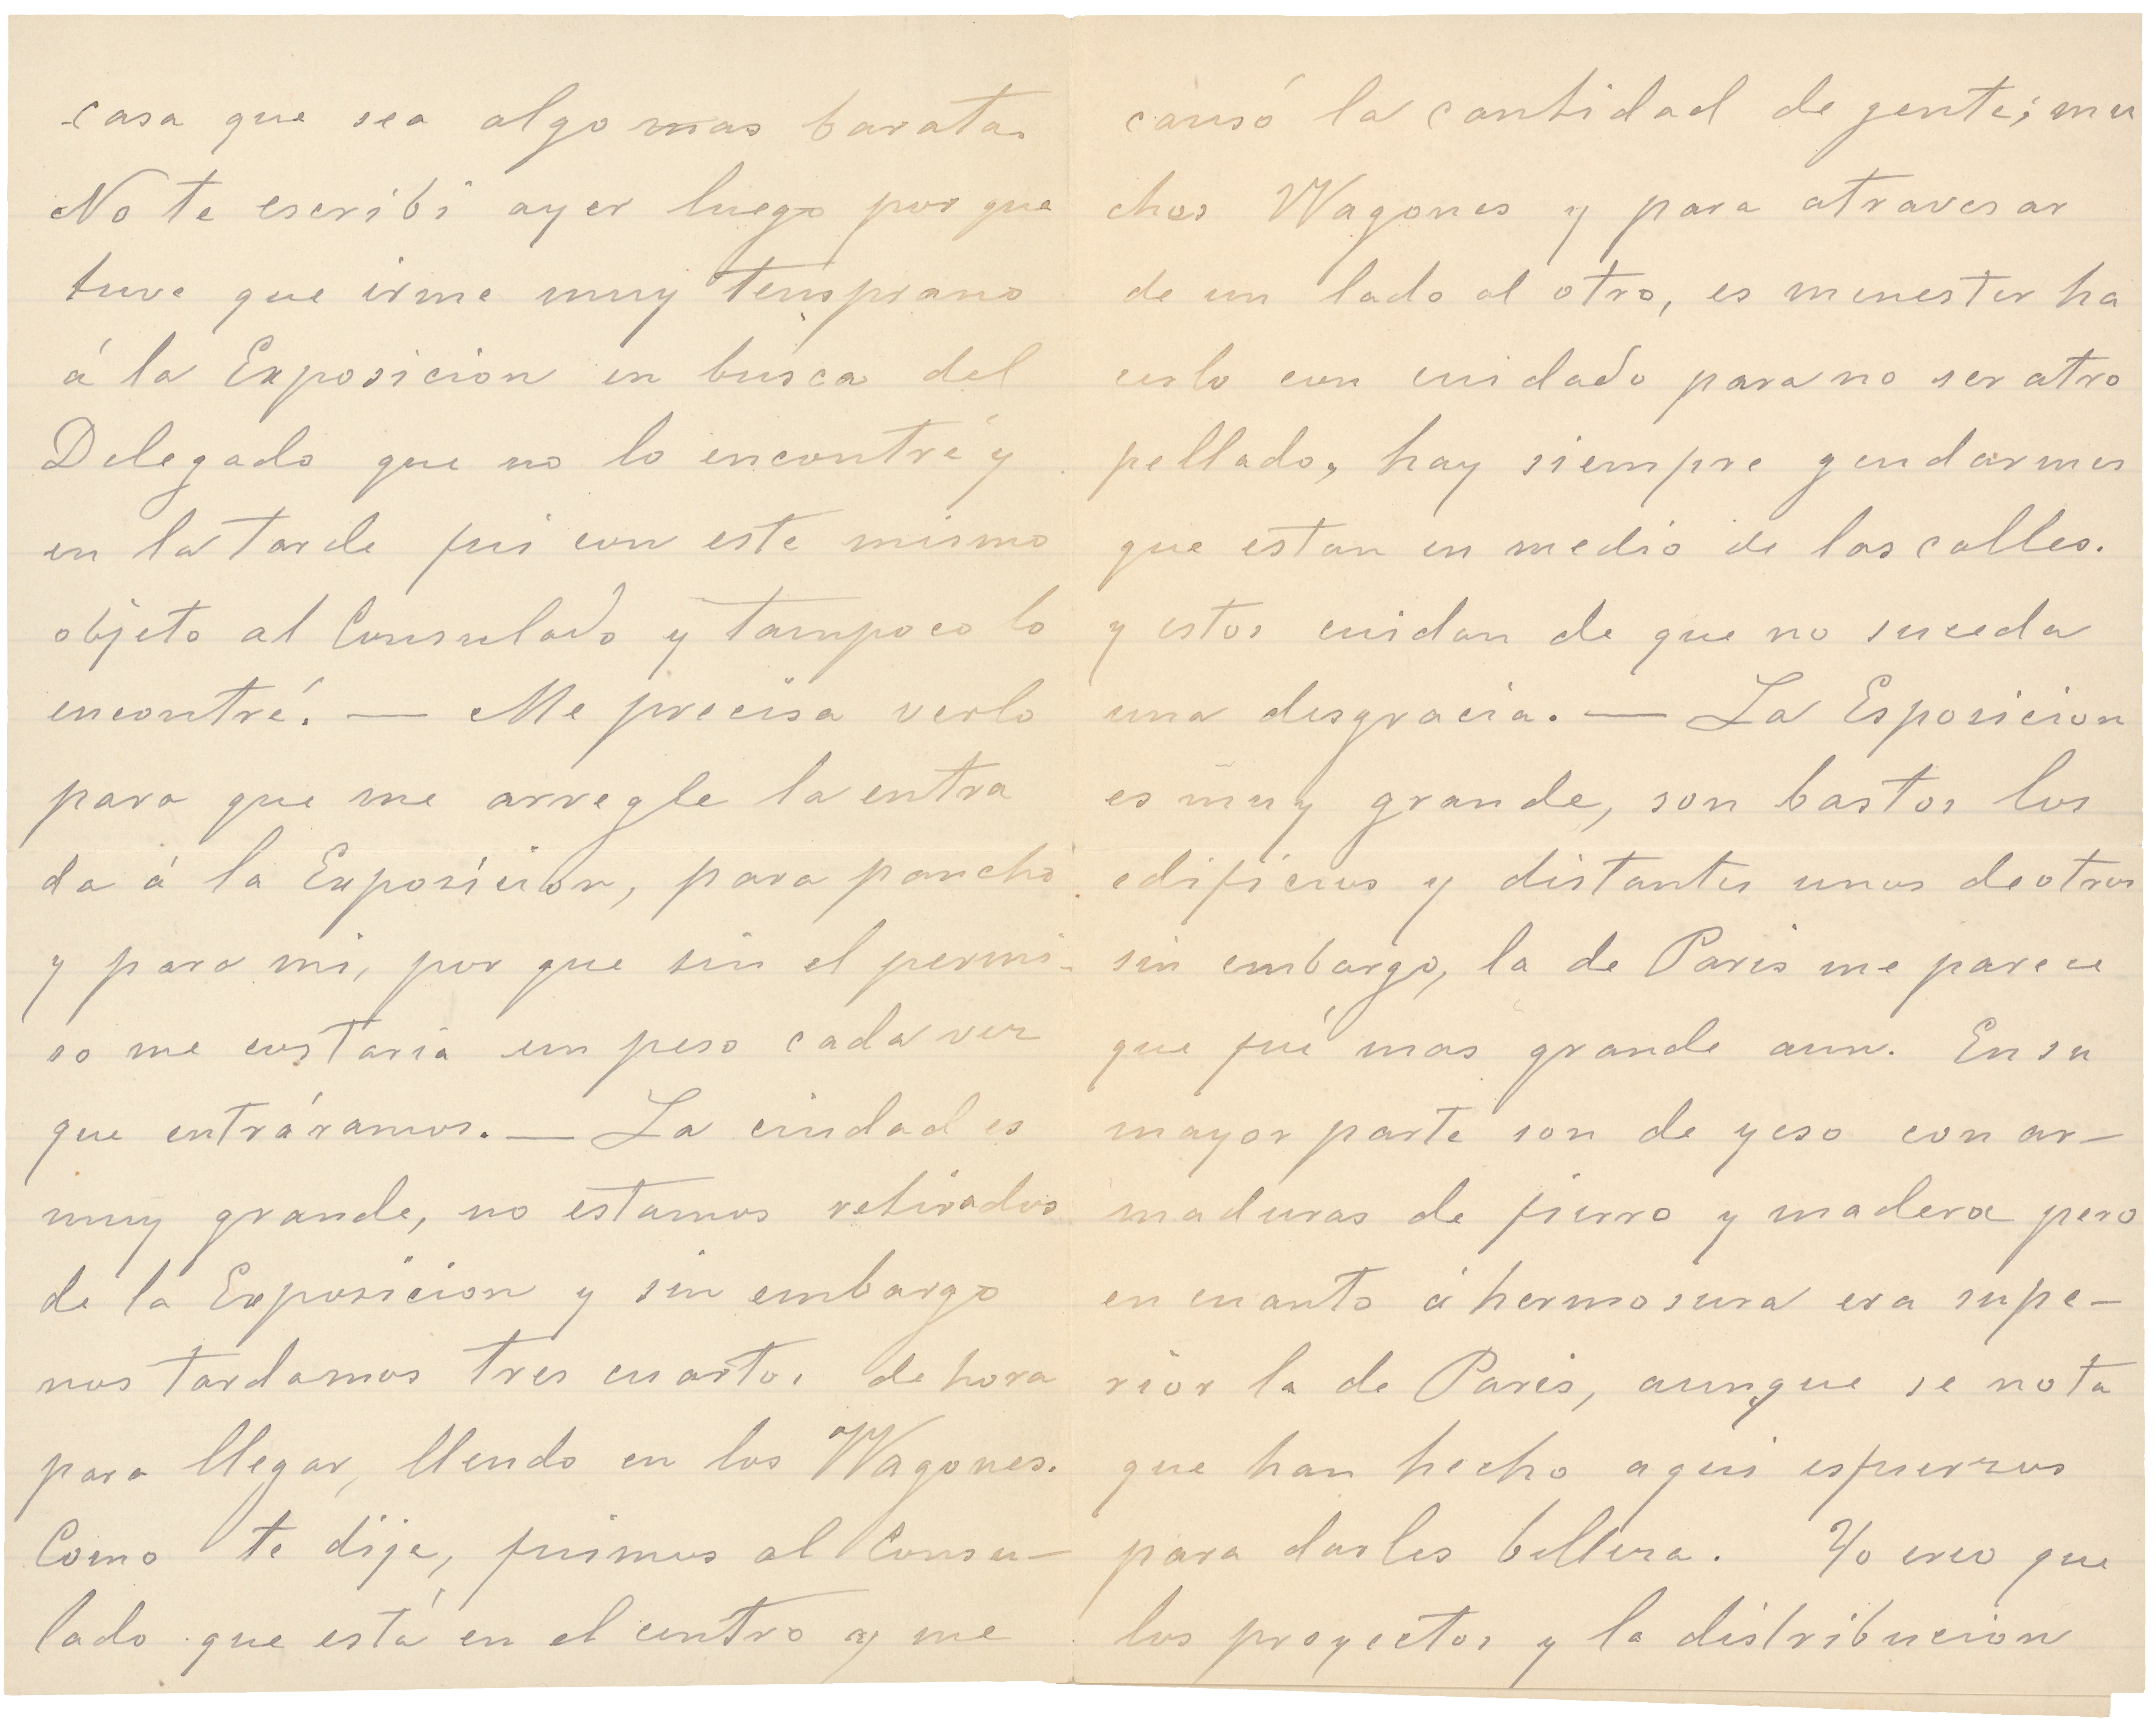 casa que sea algo mas barata.
No te escribi ayer luego por que
tuve que irme muy temprano
á la Exposicion en busca del
Delegado que no lo encontré y
en la tarde fui con este mismo
objeto al Consulado y tampoco lo
encontré. — Me precisa verlo
para que me arregle la entra
da á la Exposicion, para pancho
y para mi, por que sin el permi-
so me costaria un peso cada vez
que entráramos. — La ciudad es
muy grande, no estamos retirados
de la Exposicion y sin embargo
nos tardamos tres cuartos de hora
para llegar, llendo en los Wagones.
Como te dije, fuimos al Consu-
lado que está en el centro y me
causó la cantidad de gente; mu
chos Wagones y para atravesar
de un lado al otro, es menester ha
cerlo con cuidado para no ser atro
pellado, hay siempre gendarmes
que estan en medio de las calles.
y estos cuidan de que no suceda
una disgracia. — La Esposicion
es muy grande, son bastos los
edificios y distantes unos de otros
sin embargo, la de Paris me parece
que fué mas grande aun. En su
mayor parte son de yeso con ar-
maduras de fierro y madera pero
en cuanto á hermosura era supe-
rior la de Paris, aunque se nota
que han hecho aqui esfuerzos
para darles belleza. Yo creo que
los proyectos y la distribucion